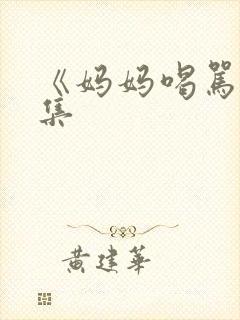 《妈妈喝骂
集
黄建华